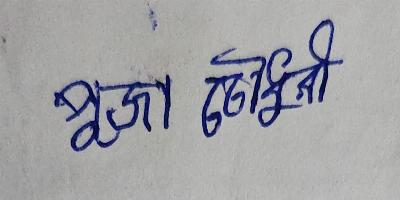 পূজা চৌধুৰী